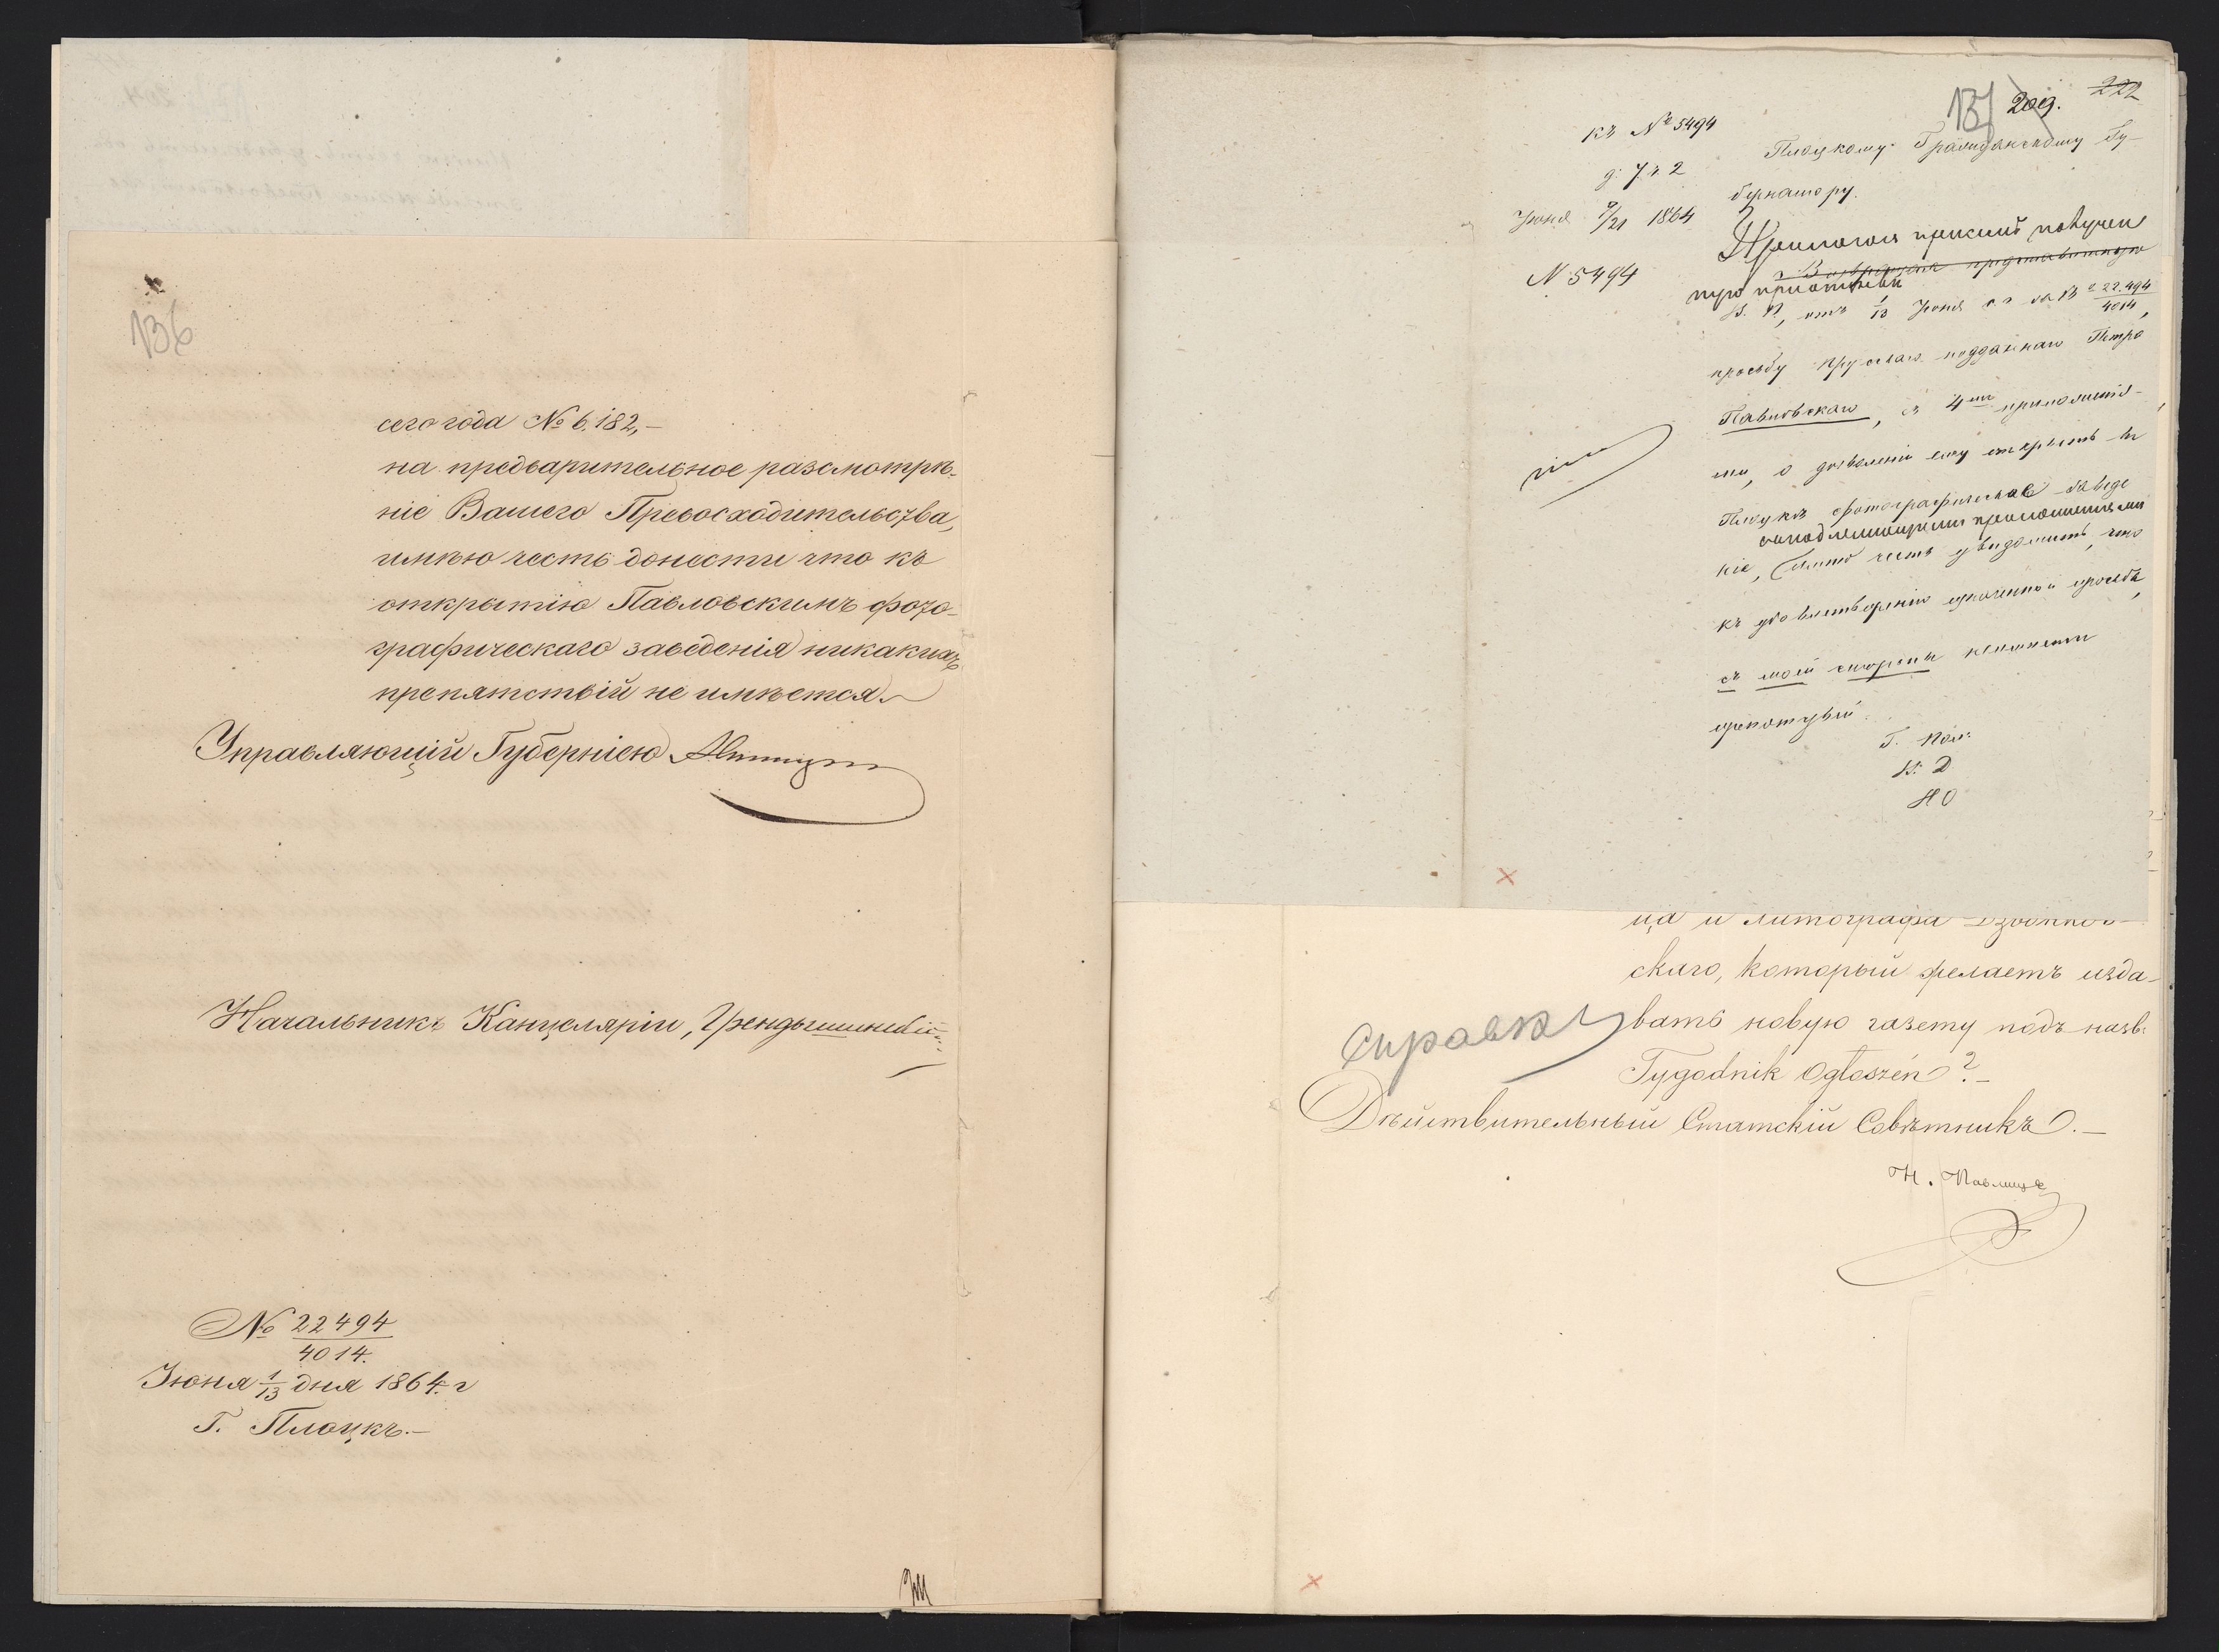 136
сего года № 6.182,—
на предварительное разсмотрѣ-
ніе Вашего Превосходительства,
имѣю честь донести что къ
открытію Павловскимъ фото-
графическаго заведенія никакихъ
препятствій не имѣется.
Управляющій Губерніею
Начальникъ Канцеляріи,
№ 22494
4014.
Іюня 1/13 дня 1864 г
Г. Плоцкъ.—
137 209. 222
къ № 5494
Плоцкому Гражданскому Гу-
бернатору.
Іюня 9/21 1864
N 5494
В. П., отъ 1/13 Іюня с г за № 22.494
4014,
просьбу Прусскаго подданнаго Петра
Павловскаго, съ 4мя приложенія-
ми, о дозволеніи ему открыть въ
Плоцкѣ фотографическое заведе
ніе, имѣю честь увѣдомить, что
къ удовлетворенію просьбы,
съ моей стороны
препятствій.
К. Д
Н О
ца и литографа
скаго, который желаетъ изда-
Справку
вать новую газету подъ назв:
Tygodnik Ogłoszeń?—
Дѣйствительный Статскій Совѣтникъ.—
Н. Павлищев